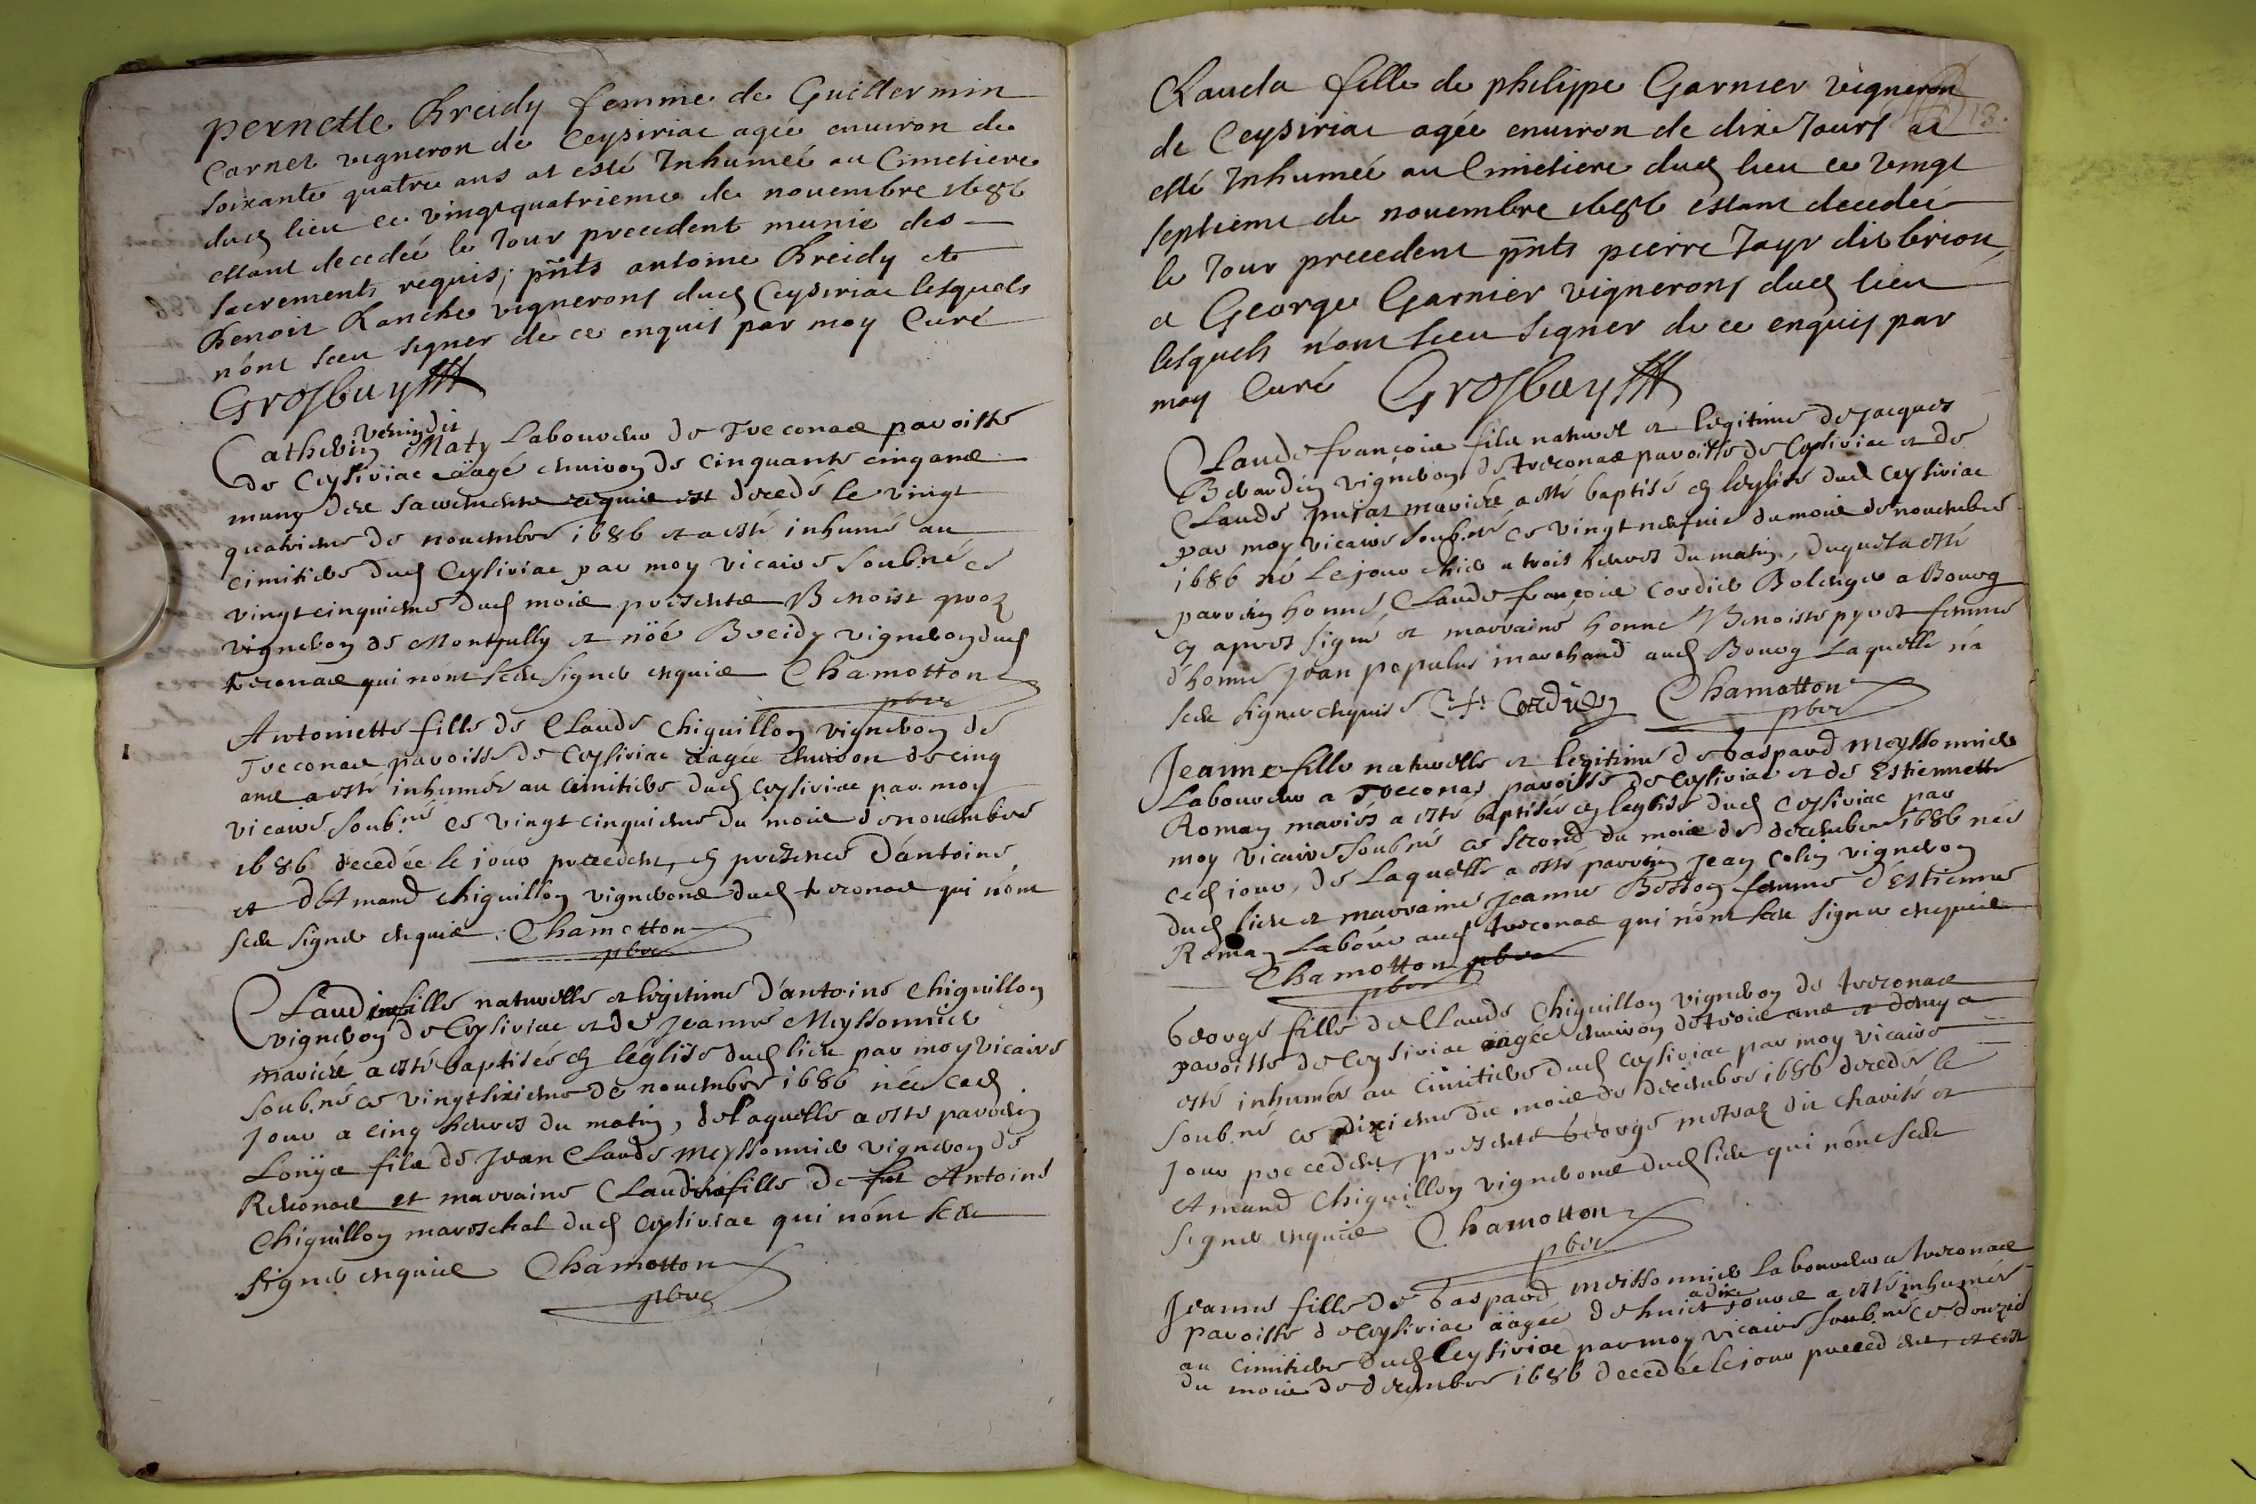 pernette Breidy femme de Guillermin
Carnet vigneron de Ceysiriac agée enuiron de
soixante quatre ans at esté Inhumeé au Cimetiere
dud lieu ce vingtquatrieme de nouembre 1686
estant decedeé le Jour precedent munie des
sacrements requis; pnts antoine Breidy et
Benoit Ranche vignerons dud Ceysiriac lesquels
n'ont sceu signer de ce enquis par moy Curé
Grosbuy
Catherin Maty Laboureur de Treconas paroisse
de Ceysiriac aagé enuiron de cinquante cinq ans
muny des sacrements requis est decedé le vingt
quatrieme de nouembre 1686 et a esté inhumé au
cimitiere dud Ceysiriac par moy vicaire soub.né ce
vingt cinquieme dud mois presents Benoist
vigneron de Montjully et noé Breidy vigneron dud
treconas qui n'ont sceu signer enquis Chamotton
pbre
Antoinette fille de Claude Chiquillon vigneron de
Treconas paroisse de Ceysiriac aagée enuiron de cinq
ans a esté inhumée au cimitiere dud Ceysiriac par moy
vicaire soub.né ce vingt cinquieme du mois de nouembre
1686 decedée le jour precedent, en presence d'antoine
et d'Amand Chiquillon vignerons dud treconas qui n'ont
sceu signer enquis. Chamotton
pbre
Claudine fille naturelle et legitime d'antoine Chiquillon
vigneron de Ceysiriac et de Jeanne Meyssonnier
mariés a esté baptisée en l'eglise dud lieu par moy vicaire
soub.né ce vingt sixieme de nouembre 1686 née ced
jour a cinq heures du matin, de laquelle a esté parrein
Louys fils de Jean Claude Meyssonnier vigneron de
Reuonas et marraine Claudine fille de fut Antoine
Chiquillon mareschal dud Ceysiriac qui n'ont sceu
signer enquis Chamotton
pbre
Clauda fille de philippe Garnier vigneron
13.
de Ceysiriac agée enuiron de dix Jours at
esté Inhumeé au Cimetiere dud lieu ce vingt
septieme de nouembre 1686 estant decedeé
le Jour precedent pnts pierre Jayr dit brion
et George Garnier vignerons dud lieu
lesquels n'ont sceu signer de ce enquis par
moy Curé Grosbuy
Claude françois fils naturel et legitime de Jacques
Berardin vigneron de treconas paroisse de Ceysiriac et de
Claude mariés a esté baptisé en l'eglise dud Ceysiriac
par moy vicaire soub.né ce vingt neufuie du mois de nouembre
1686 né le jour hier a trois heures du matin, duquel a esté
parrein honne. Claude françois Cordier Bolenger a Bourg
cy apres signé et marraine honne Benoiste pyret femme
d'honne Jean populus marchand aud Bourg Laquelle n'a
sceu signer enquise C. f. Cordier Chamotton
pbre
Jeanne fille naturelle et legitime de Gaspard Meyssonnier
Laboureur a Treconas paroisse de Ceysiriac et de Estiennette
Roman mariés a esté baptisée en l'eglise dud Ceysiriac par
moy vicaire soub.né ce second du mois de decembre 1686 née
ced jour, de Laquelle a esté parrein Jean Colin vigneron
dud lieu et marraine Jeanne Bosson femme d'Estienne
Roman Labour aud treconas qui n'ont sceu signer enquis
Chamotton pbre
pbre
George fille de Claude Chiquillon vigneron de treconas
paroisse de Ceysiriac aagée enuiron de trois ans et demy a
esté inhumée au cimitiere dud Ceysiriac par moy vicaire
soub.né ce dixieme du mois de decembre 1686 decedée le
jour precedent, presents George metraz dit charité et
Amand Chiquillon vignerons dud lieu qui n'ont sceu
signer enquis Chamotton
pbre
Jeanne fille de Gaspard meissonnier Laboureur a treconas
paroisse de Ceysiriac aagée de huict a dix jours a esté inhumée
au cimitiere dud Ceysiriac par moy vicaire soub.né ce douzie
du mois de decembre 1686 decedée le jour precedent, et